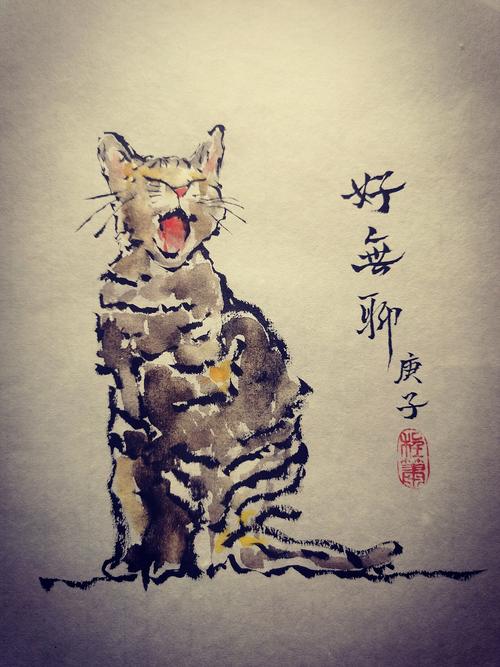 好無聊
庚子